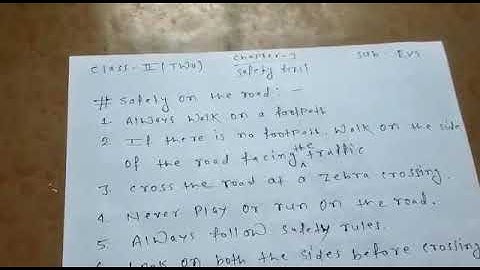 Class-II (TWO) chapter-9 sub-EVS
safety first
# safely on the road: -
1. Always walk on a footpath
2. If there is no footpath. Walk on the side
of the road facing the traffic
3. cross the road at a zebra crossing.
4. Never play or run on the road.
5. Always follow safety rules.
Look on both the sides before crossing